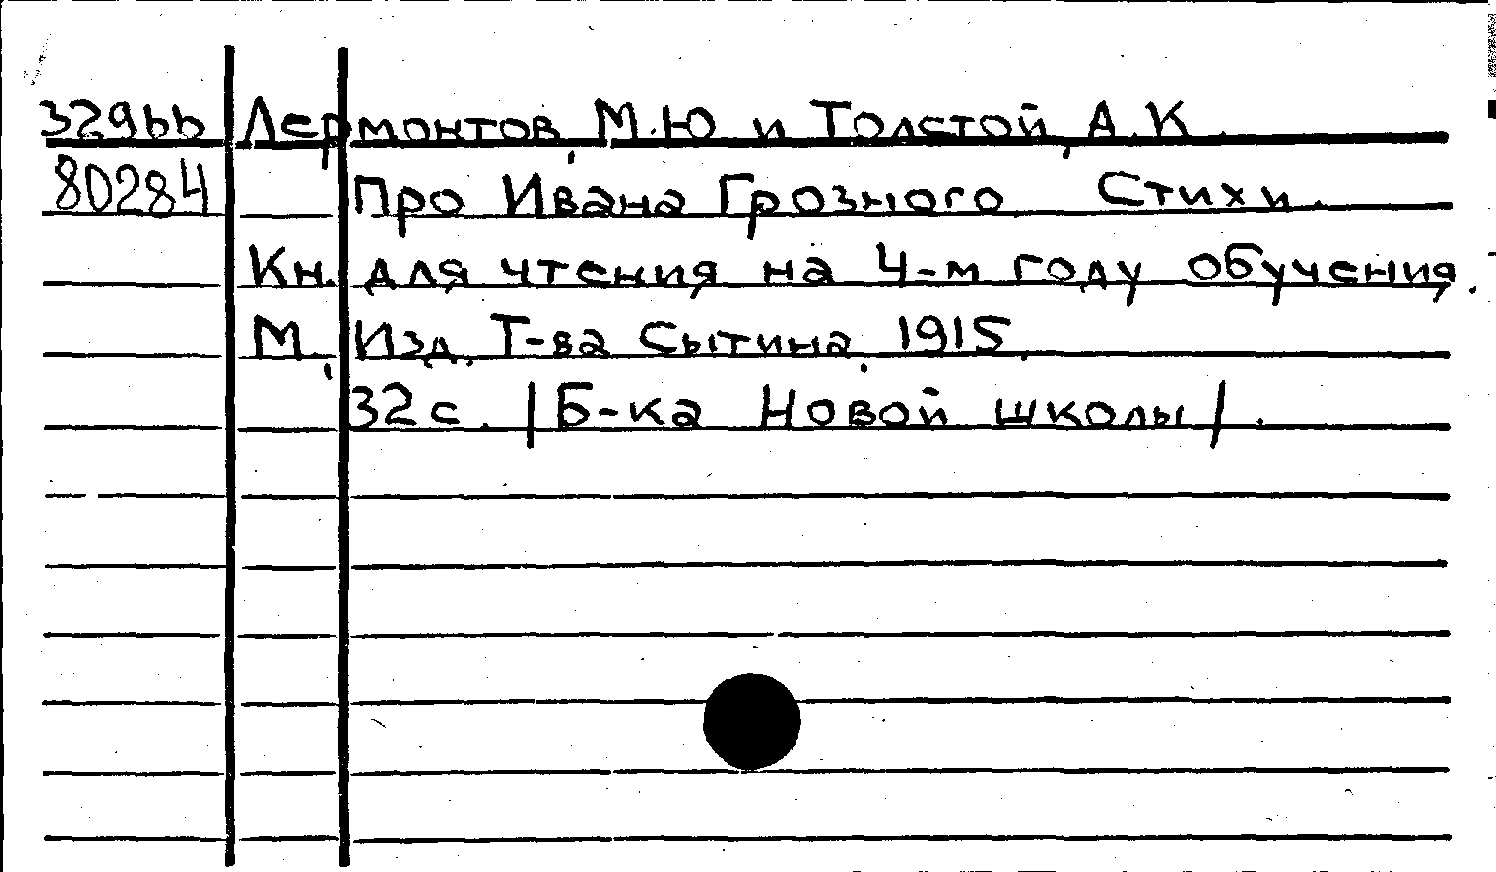 32966 Лермонтов, М.Ю и Толстой, А.К.
80284 Про Ивана Грозного. Стихи.
Кн. для чтения на 4-м году обучения.
М., Изд. Т-ва Сытина, 1915.
32с. /Б-ка Новой школы/.